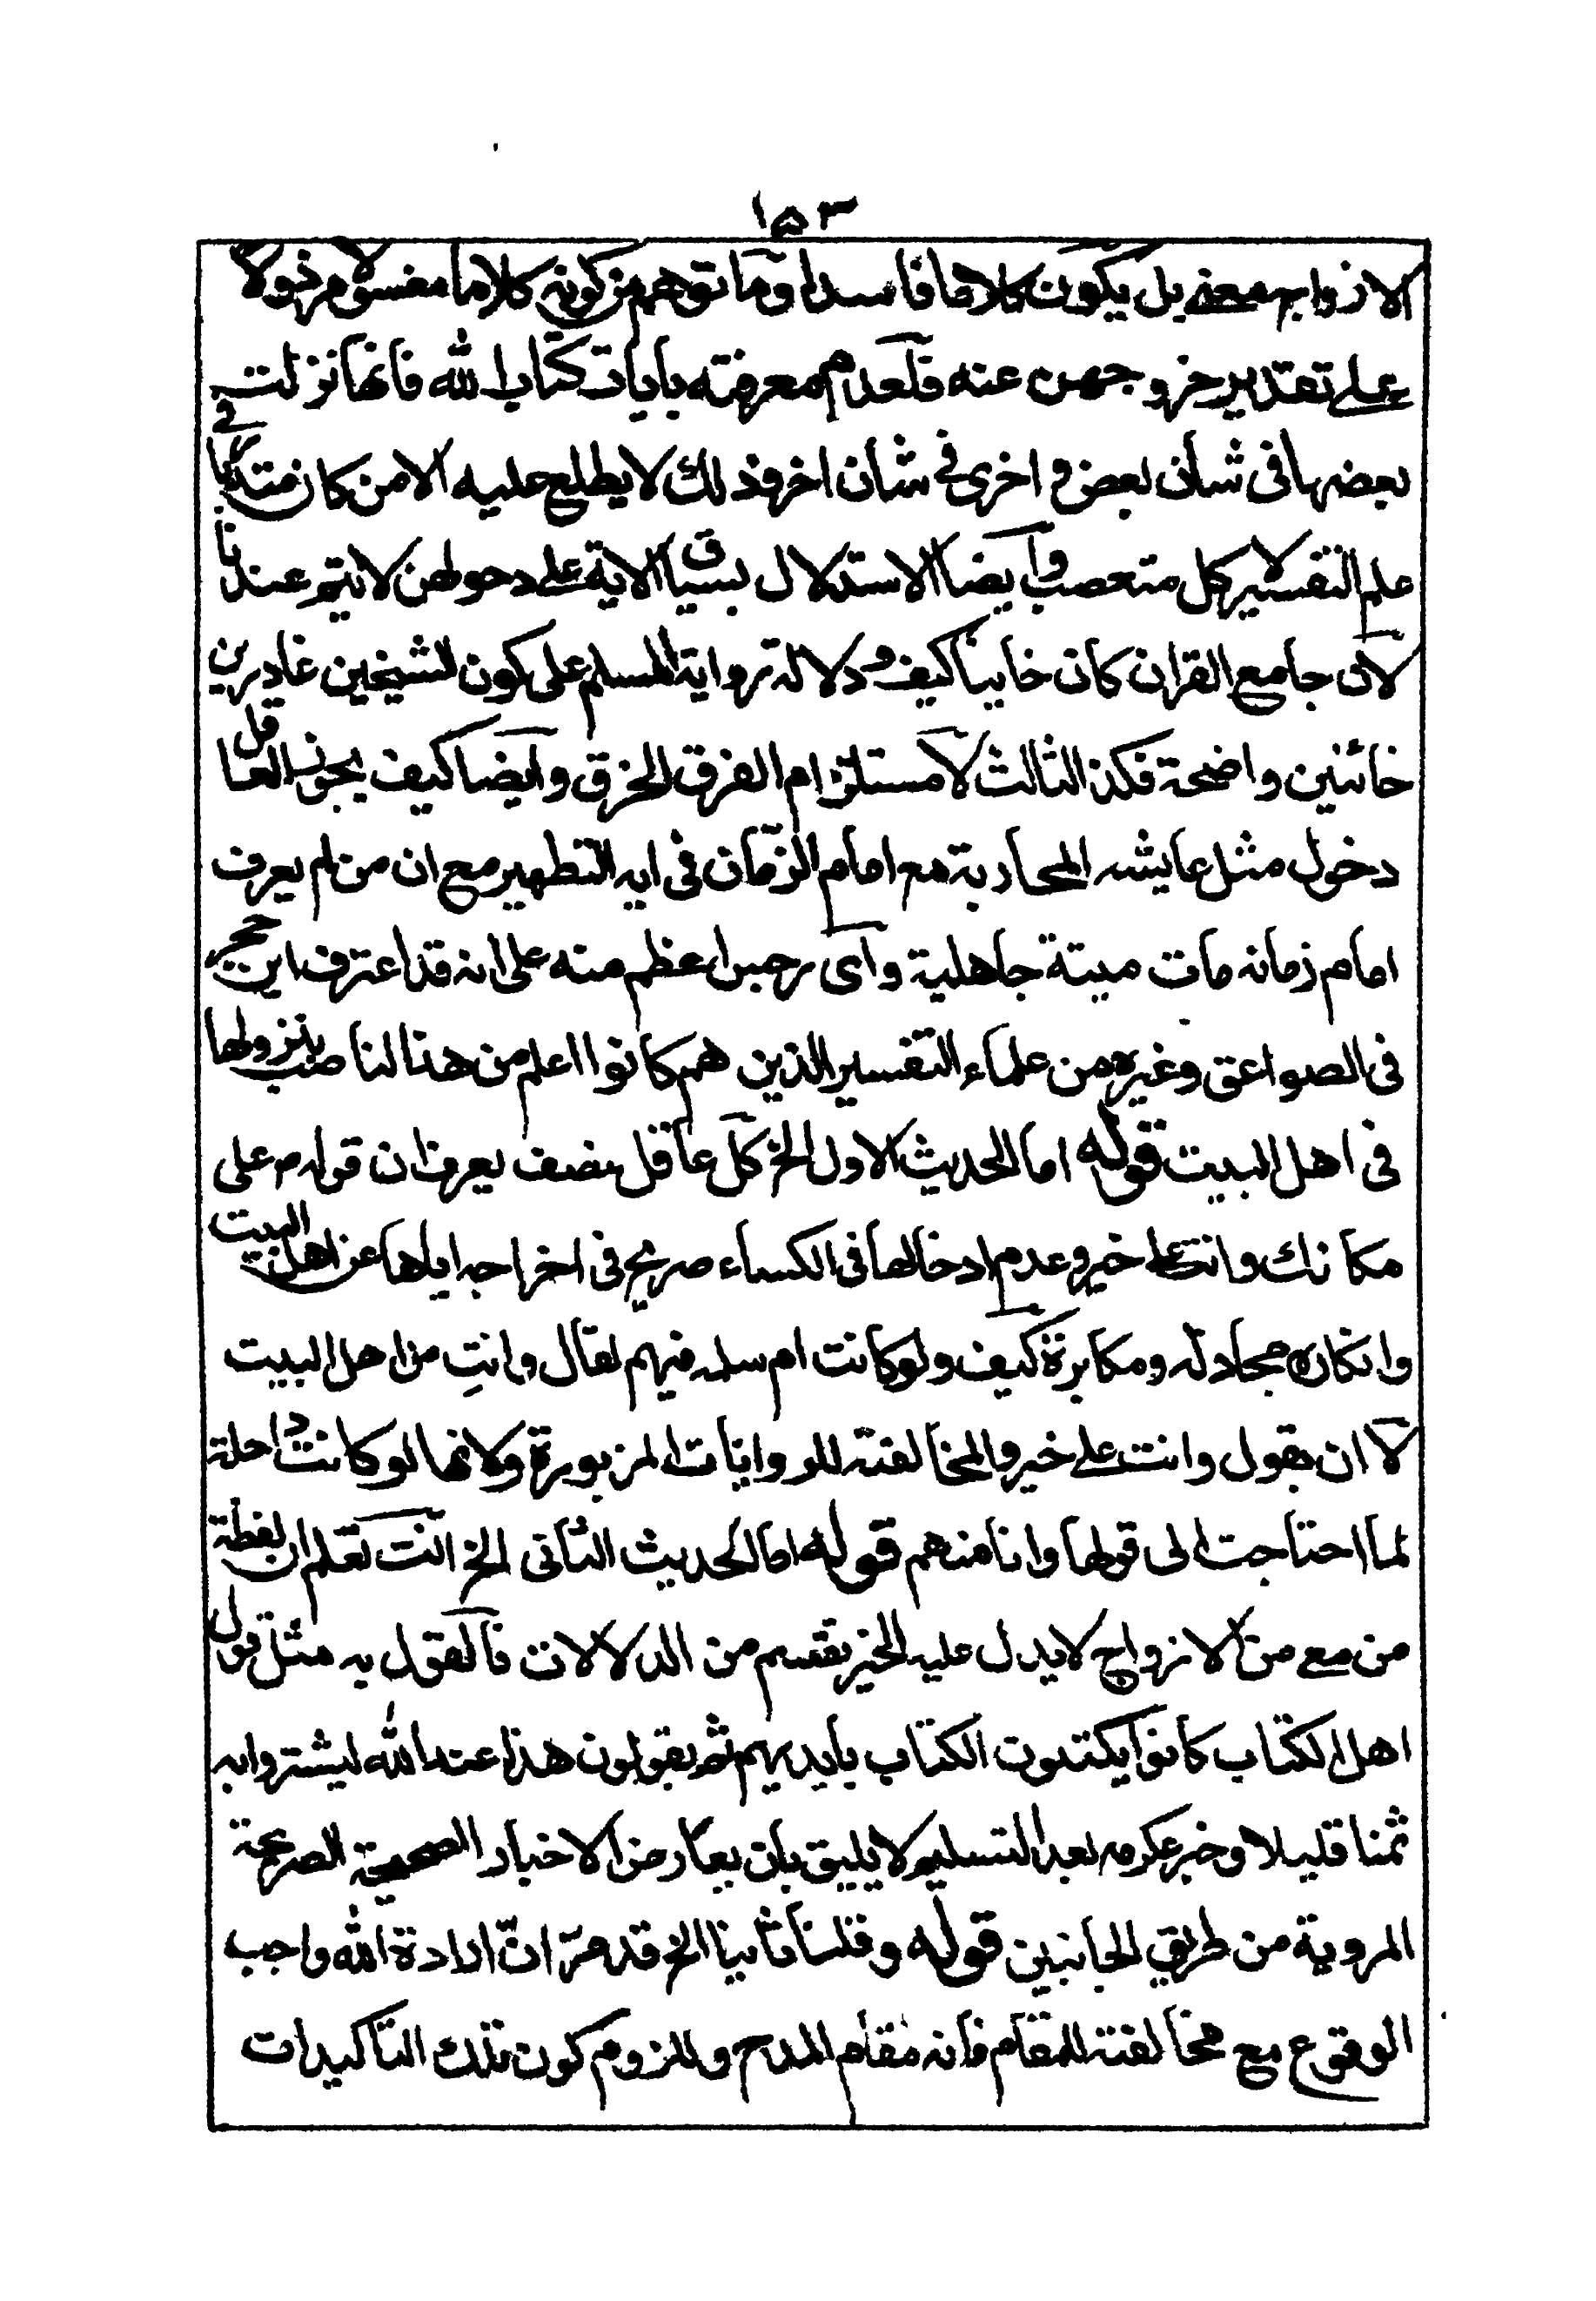 ١٥٣
الازواج معه بل يكون كلاما فاسدا وما توهم من كونه كلاما مغسولا مرذولا
على تقدير خروجهن عنه فلعدم معرفته بايات كتاب الله فانها نزلت
بعضها فى شأن بعض و اخرى فى شأن اخر وذلك لا يطلع عليه الا من كان متدربا فى
علم التفسير لا كل متعصب وايضا الاستدلال بسياق الاية على دخولهن لا يتم عندنا
لان جامع القران كان خاينا كيف ودلالة رواية المسلم على كون الشيخين غادرين
خائنين واضحة فكذ الثالث لاستلزام الفرق الخرق وايضا كيف يجوز العاقل
دخول مثل عايشه المحاربة مع امام الزمان فى ايه التطهير مع ان من لم يعرف
امام زمانه مات ميتة جاهلية واى رجس اعظم منه على انه قد اعترف ابن حجر
فى الصواعق وغيره من علماء التفسير الذين هم كانوا اعلم من هذا الناصب بنزولها
فى اهل البيت قوله اما الحديث الاول الخ كل عاقل منصف يعرف ان قوله م على
مكانك وانت على خير وعدم ادخالها فى الكساء صريح فى اخراجه اياها عن اهل البيت
وانكاره مجادله ومكابرة كيف ولو كانت ام سلمه فيهم لقال وانتِ من اهل البيت
لا ان يقول وانت على خير والمخالفته للروايات المزبورة ولانها لو كانت داخلة
لما احتاجت الى قولها وانا منهم قوله اما الحديث الثانى الخ انت تعلم ان لفظة
من مع من الازواج لا يدل عليه الخبر بقسم من الدلالات فالقول به مثل قول
اهل الكتاب كانوا يكتبون الكتاب بايديهم ثم يقولون هذا عند الله ليشتروا به
ثمنا قليلا وخبر عكرمه بعد التسليم لا يليق بان يعارض الاخبار الصحيحة الصريحة
المروية من طريق الجانبين قوله وقلنا ثانيا الخ قد مرّ انّ ارادة الله واجب
الوقوع مع مخالفته للمقام فانه مقام المدح وللزوم كون تلك التاكيدات